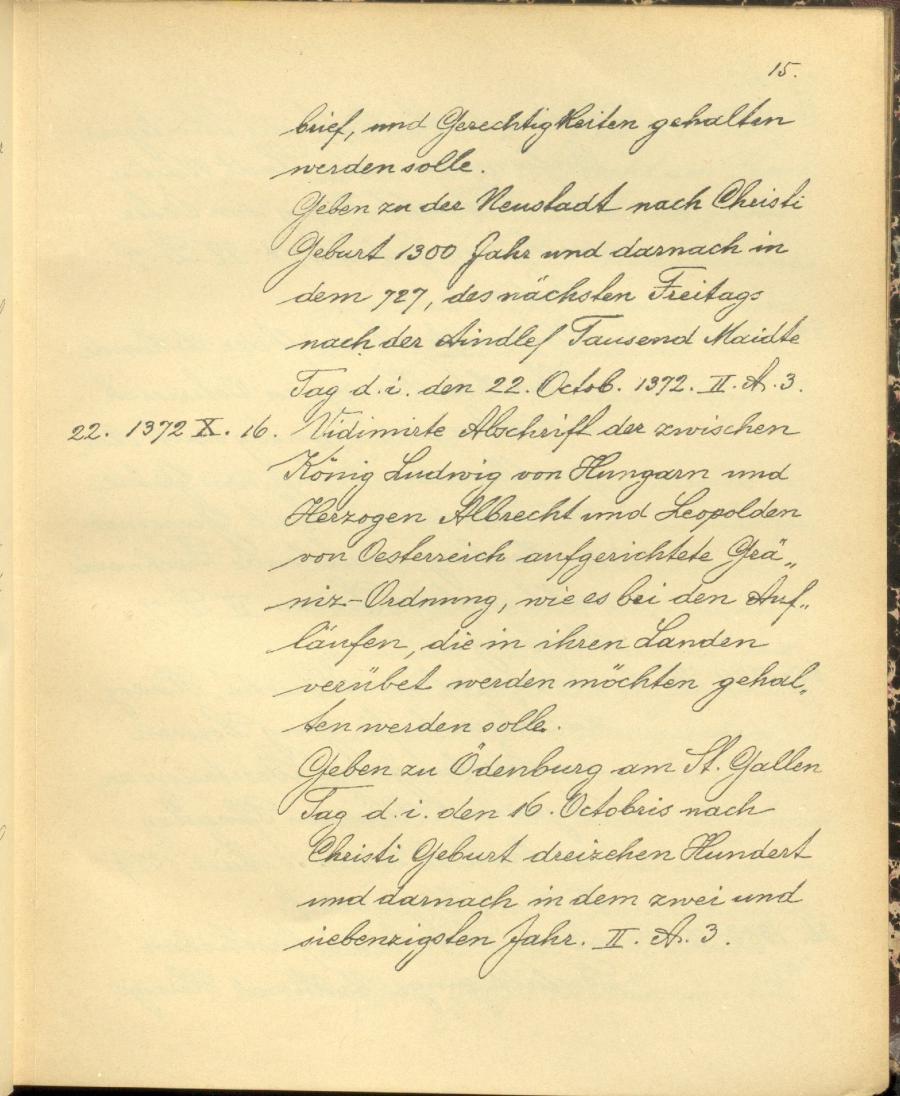 15.
brief, und Gerechtigkeiten gehalten
werden solle.
Geben zu der Neustadt nach Christi
Geburt 1300 Jahr und darnach in
dem 727, des nächsten Freitags
nach der Aindlef Tausend Maidte
Tag d. i. den 22. Octob. 1372. II. A. 3.
22. 1372 X. 16. Vidimirte Abschrift der zwischen
König Ludwig von Hungarn und
Herzogen Albrecht und Leopolden
von Oesterreich aufgerichtete Grä„
niz-Ordnung, wie es bei den Auf„
läufen, die in ihren Landen
verübet werden möchten gehal„
ten werden solle.
Geben zu Ödenburg am St. Gallen
Tag d. i. den 16. Octobris nach
Christi Geburt dreizehen Hundert
und darnach in dem zwei und
siebenzigsten Jahr. II. A. 3.